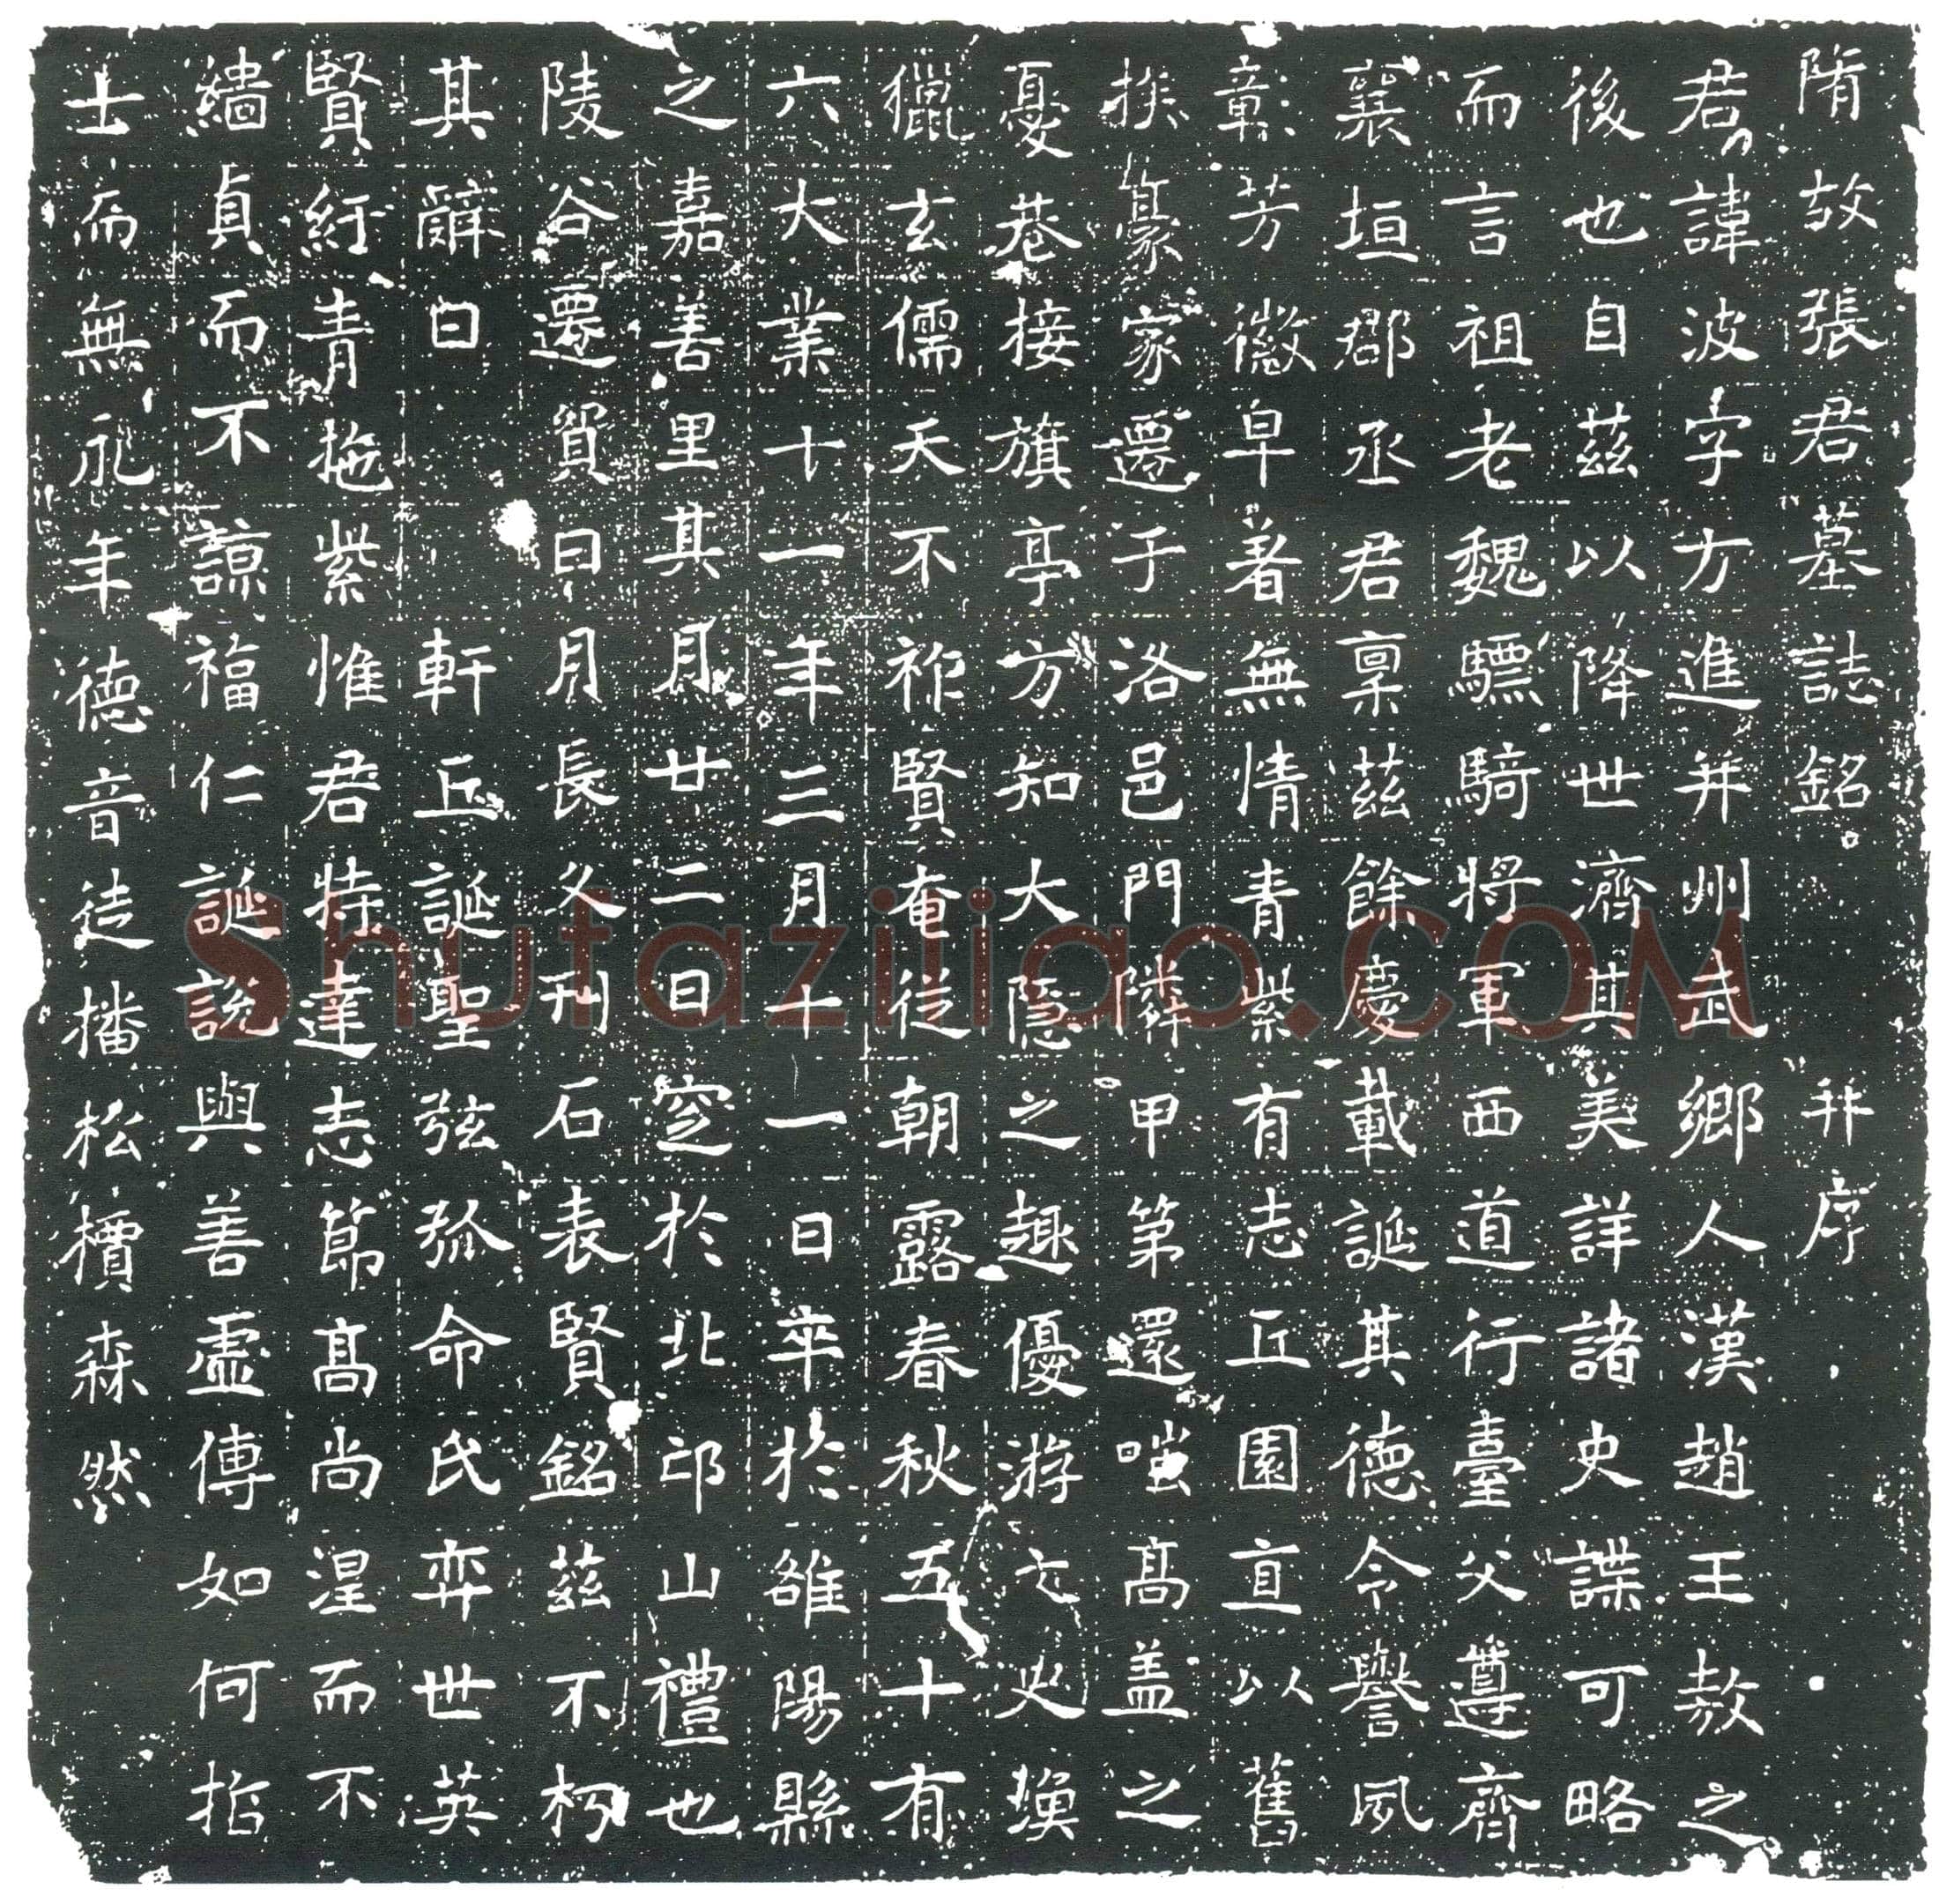 隋故張君墓誌銘 并序
君諱波字方進并州武鄉人漢趙王敖之
後也自茲以降世濟其美詳諸史諜可略
而言祖老魏驃騎將軍西道行臺父遵齊
襄垣郡丞君稟茲餘慶載誕其德令譽夙
彰芳徽早著無情青紫有志丘園直以舊
族豪家遷于洛邑門隣甲第還嗤高盖之
憂巷接旗亭方知大隱之趣優游文史漁
獵玄儒天不祚賢奄從朝露春秋五十有
六大業十一年三月十一日卒於雒陽縣
之嘉善里其月廿二日窆於北邙山禮也
陵谷遷貿日月長久刊石表賢銘茲不朽
其辭曰 軒丘誕聖弦弧命氏弈世英
賢紆青拖紫惟君特達志節高尚涅而不
緇貞而不諒福仁誕說與善虛傳如何指
士而無永年德音徒播松檟森然
Shufaziliao.COM